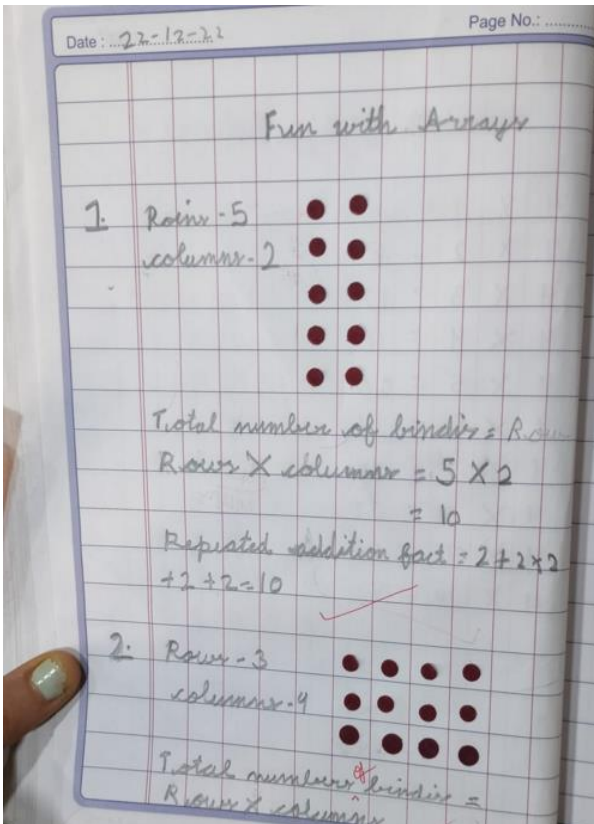 Page No.: ............
Date : ...22-12-22
Fun with Arrays
1. Rows - 5
columns - 2
Total number of bindis = Row
Rows X columns = 5 X 2
= 10
Repeated addition fact = 2+2+2
+2+2=10
2. Rows - 3
columns - 4
Total numbers of bindis =
Rows X columns